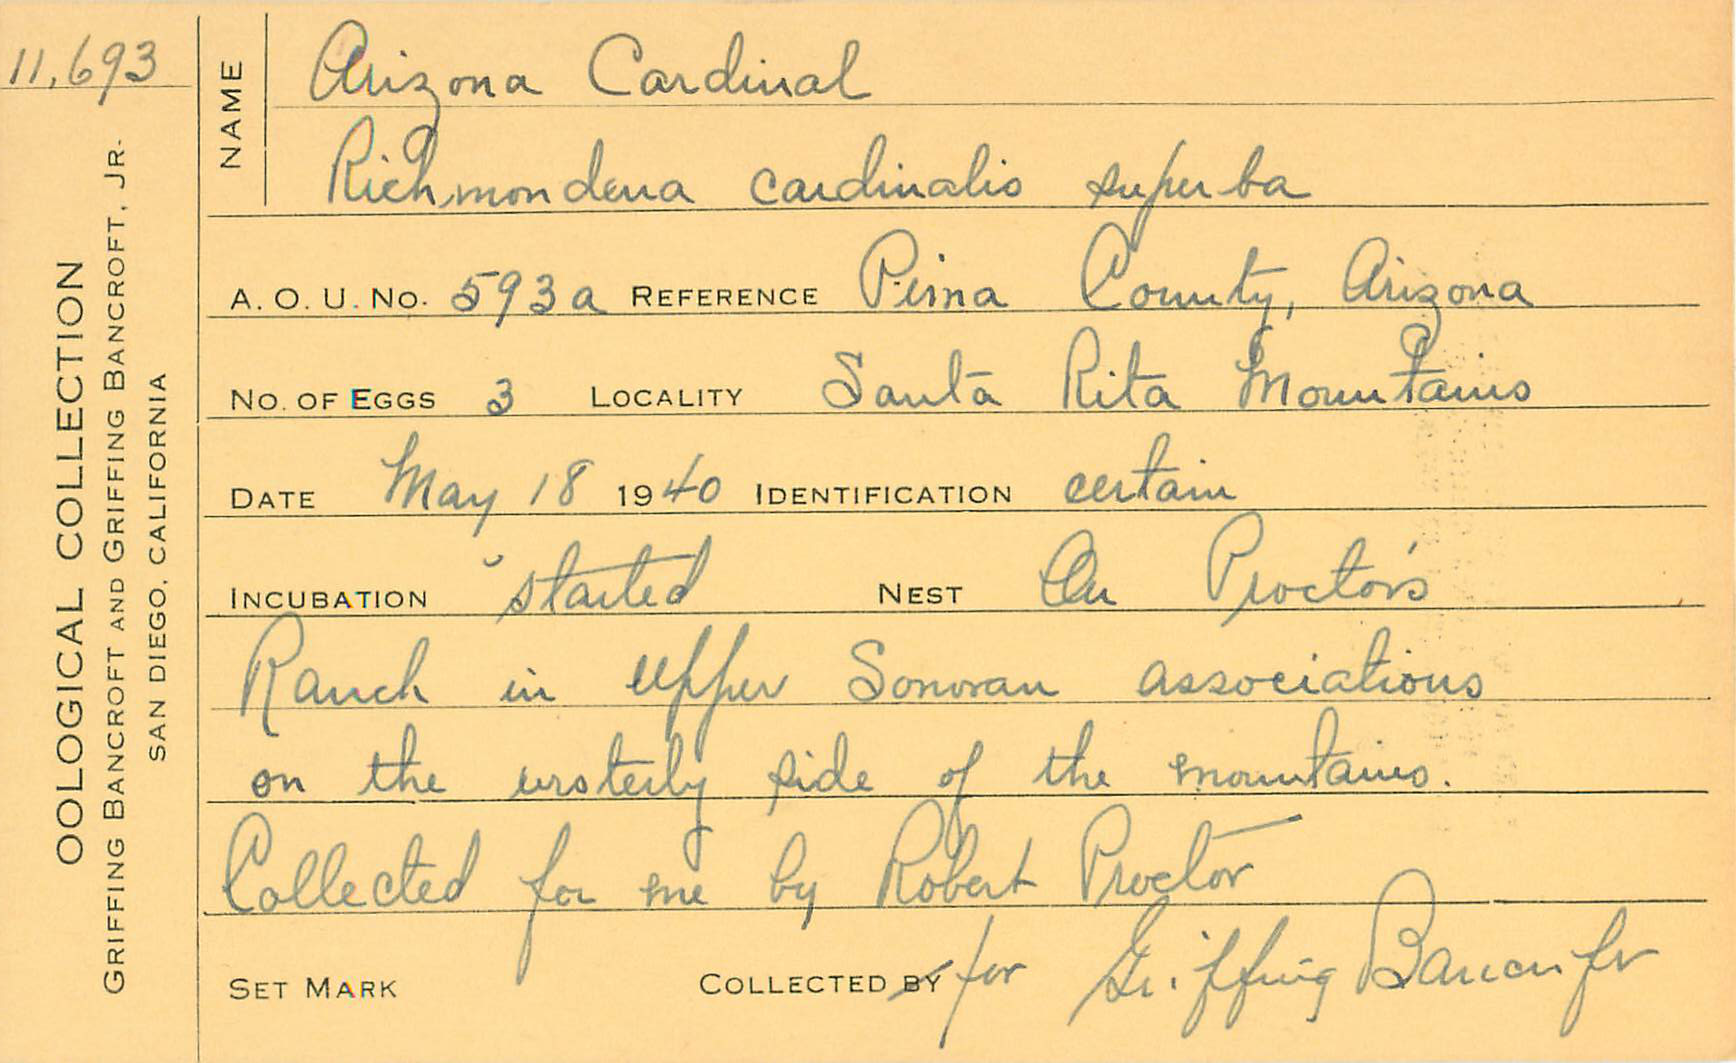 11,693
OOLOGICAL COLLECTION
GRIFFING BANCROFT AND GRIFFING BANCROFT, JR.
SAN DIEGO, CALIFORNIA
NAME Arizona Cardinal
Richmondena cardinalis superba
A. O. U. No. 593a REFERENCE Pima County, Arizona
No. OF EGGS 3 LOCALITY Santa Rita Mountains
DATE May 18 1940 IDENTIFICATION certain
INCUBATION started NEST On Proctor's
Ranch in Upper Sonoran associations
on the westerly side of the mountains.
Collected for me by Robert Proctor
SET MARK COLLECTED BY for Griffing Bancroft